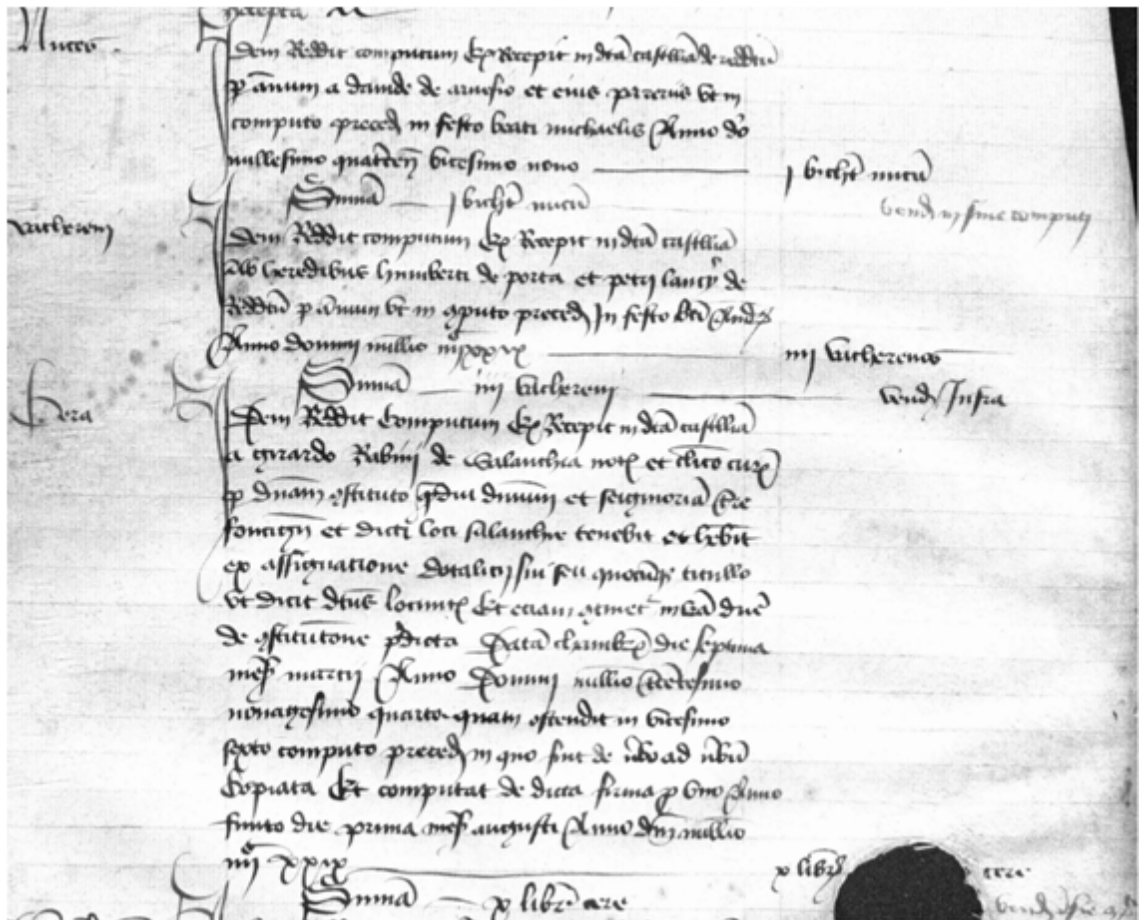 recepta
Nuces
Idem Reddit computum Ex Recepit in dcā castllīa de redditū
p annum a dauide de aruisio et eius parerus vt in
computo preced in festo beati michaelis Anno do
millesimo quatercen vicesimo nono j bicht nucū
Summa j bicht nucū vend in fine computi
Vacherenj
Idem Reddit computum Ex Recepit in dcā castllīa
Ab heredibus humberti de porta et petri lancy de
Redditu p annum vt in computo preced In festo bti Andr
Anno domini millio iiijxxix iiij Vacherenos
Summa iiij vacherenj vend Infra
Cera
Idem Reddit Computum Ex Recepit in dcā castllīa
a girardo Rabinj de Salanchia not et clico cur
p dnam ostituto qdiu dnium et seignoriam tre
foucignj et dicti loci salanchie tenebit et hebit
ex assignatione dotalicij sui seu quocunq titullo
vt dicit dtus locumt Et eciam otinet in lra dne
de ostitutone pdicta Data chamb die septima
mens marcij Anno Domini millio tercentesimo
nonagesimo quarto quam ostendit in vicesimo
sexto computo preced in quo sunt de vbo ad vbū
Copiata Et computat de dicta firma p vno Anno
finito die prima mens augusti Anno dni millio
iiij xxix x libr cere
Summa x libr cere vend